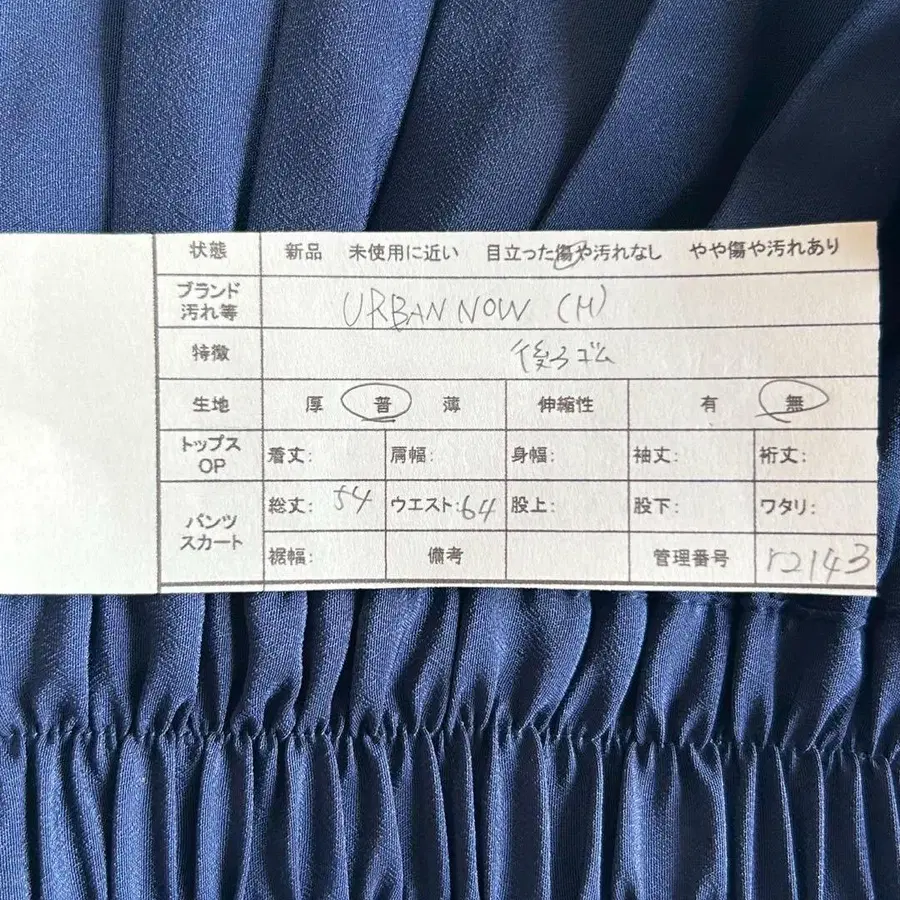 状態 新品 未使用に近い 目立った傷や汚れなし やや傷や汚れあり
ブランド
汚れ等 URBAN NOW (M)
特徴 後ろゴム
生地 厚 普 薄 伸縮性 有 無
トップス
OP 着丈: 肩幅: 身幅: 袖丈: 裄丈:
パンツ
スカート 総丈: 54 ウエスト: 64 股上: 股下: ワタリ:
裾幅: 備考 管理番号 r2143